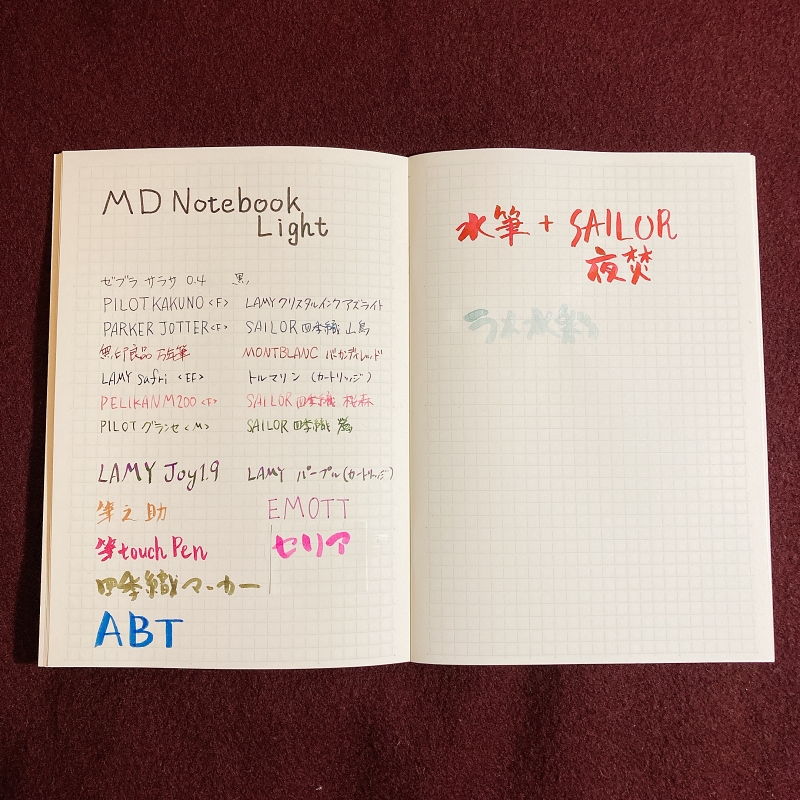 MD Notebook
Light
ゼブラ サラサ 0.4 黒
PILOT KAKUNO <F> LAMY クリスタルインク アズライト
PARKER JOTTER <F> SAILOR 四季織 山鳥
無印良品 万年筆 MONTBLANC バーガンディレッド
LAMY safari <EF> トルマリン (カートリッジ)
PELIKAN M200 <F> SAILOR 四季織 桜森
PILOT グランセ <M> SAILOR 四季織
LAMY Joy 1.9 LAMY パープル (カートリッジ)
筆之助 EMOTT
筆touch Pen セリア
四季織マーカー
ABT
水筆 + SAILOR
夜焚